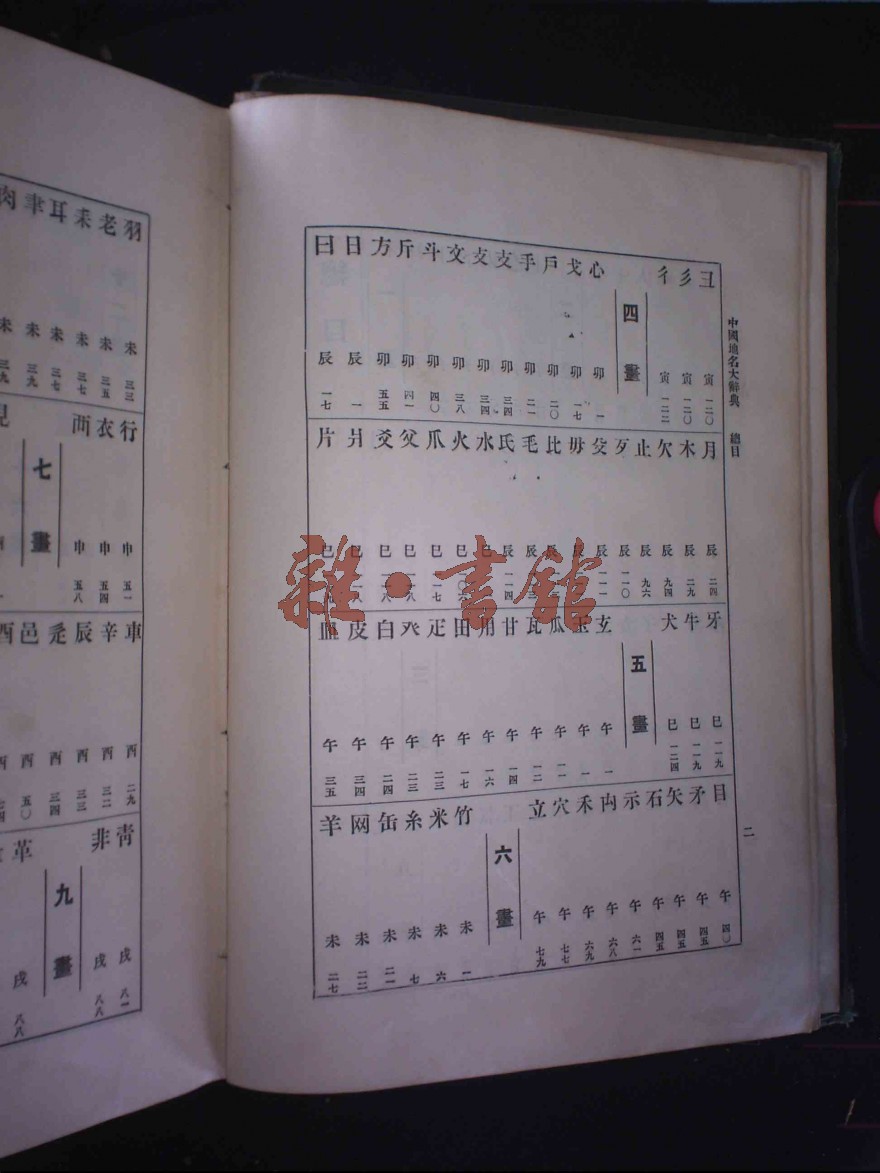 中國地名大辭典 總目
二
彐 彡 彳
寅 寅 寅
一二〇 一二〇 一二二
四畫
心 戈 戶 手 支 攴 文 斗 斤 方 日 曰
卯 卯 卯 卯 卯 卯 卯 卯 卯 卯 辰 辰
一 一七 二〇 二一 三四 三四 三八 四〇 四一 五五 一 一七
月 木 欠 止 歹 殳 毋 比 毛 氏 水 火 爪 父 爻 爿 片
辰 辰 辰 辰 辰 辰 辰 辰 辰 辰 巳 巳 巳 巳 巳 巳 巳
二四 二九 九四 九六 一一〇
牙 牛 犬
巳 巳 巳
一一九 一一九 一二四
五畫
玄 玉 瓜 瓦 甘 用 田 疋 癶 白 皮 皿
午 午 午 午 午 午 午 午 午 午 午 午
一 一 一二 一二 一四 一六 一七 二三 二三 二四 三四 三五
目 矛 矢 石 示 禸 禾 穴 立
午 午 午 午 午 午 午 午 午
四〇 四五 四五 四五 六一 六八 六九 七七 七九
六畫
竹 米 糸 缶 网 羊
未 未 未 未 未 未
一 六 七 二一 二二 二七
羽 老 耒 耳 聿 肉
未 未 未 未 未 未
三三 三五 三七 三七 三九 三九
行 衣 襾
申 申 申
五一 五四 五八
七畫
見
車 辛 辰 辵 邑 酉
酉 酉 酉 酉 酉 酉
二九 三二 三三 三四 五〇
靑 非
戌 戌
八一 八八
九畫
革
戌
八八
雜·書館